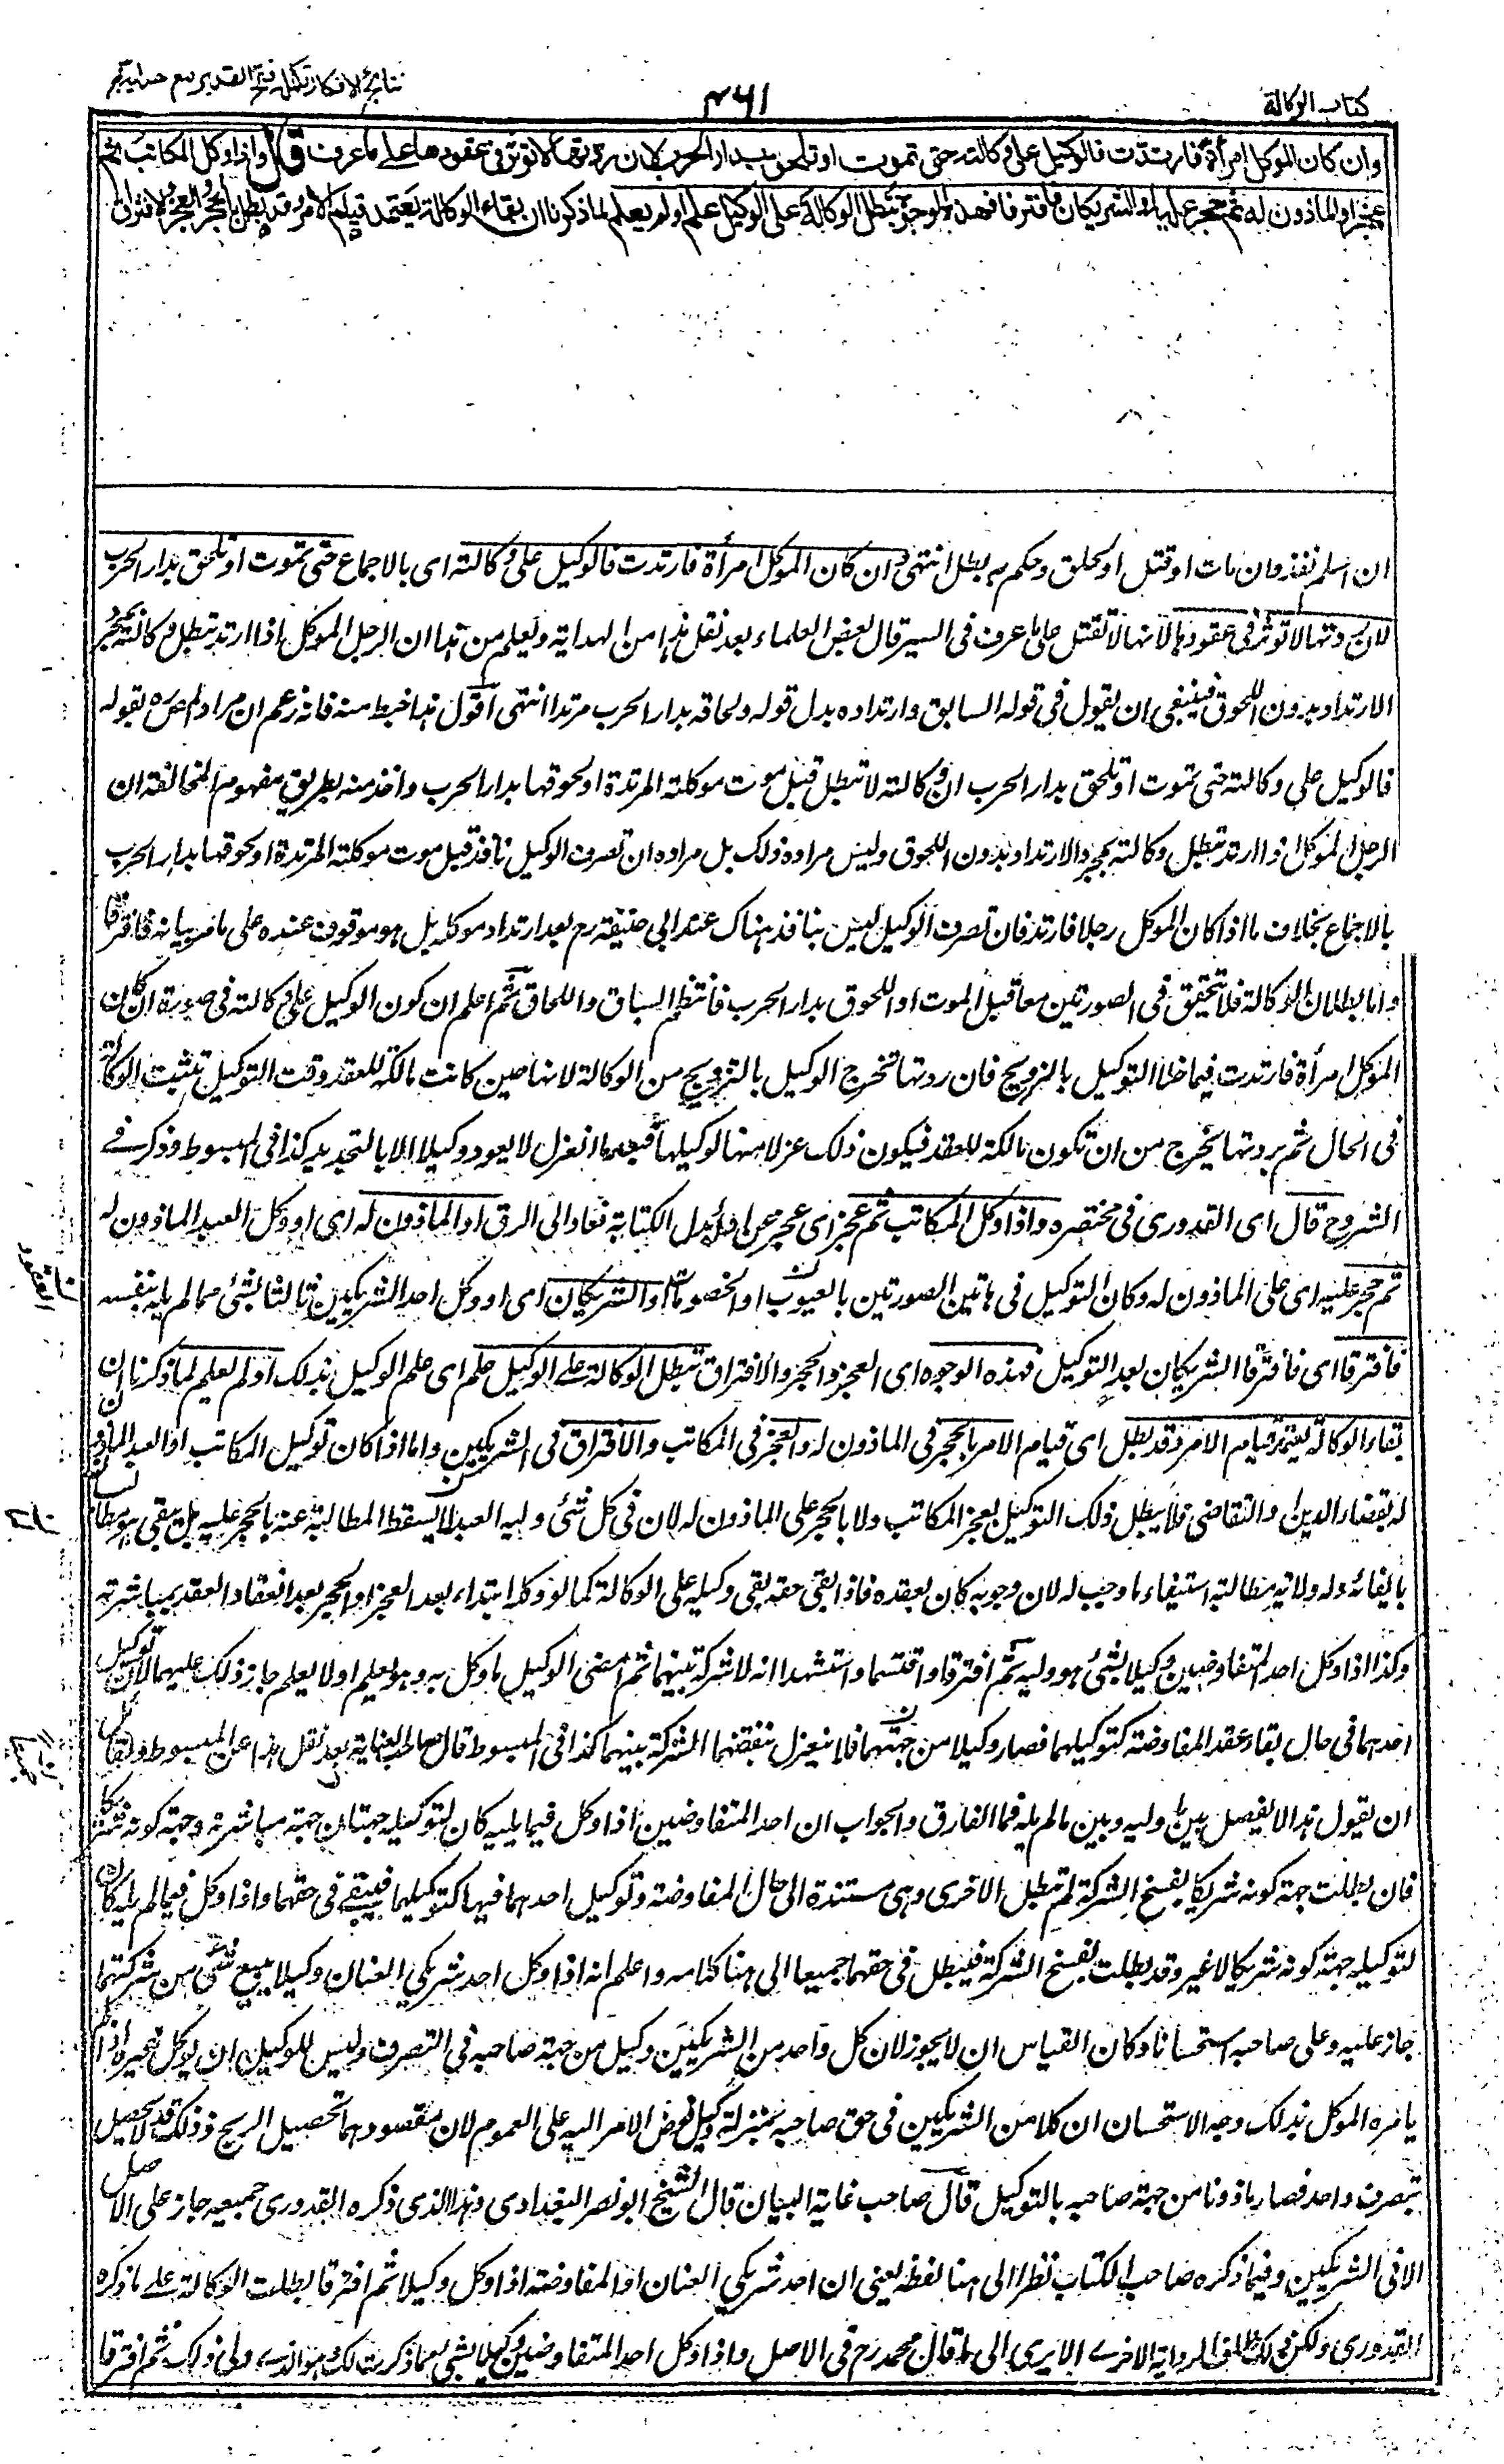 كتاب الوكالة
٤٦١
نتائج الافكار تكملة فتح القدير مع هداية
وان كان الموكل امرأة فارتدت فالوكيل على وكالته حتى تموت او تلحق بدار الحرب لان ردتها لا تؤثر فى عقودها على ما عرف قال واذا وكل المكاتب ثم
عجز او الماذون له ثم حجر عليه او الشريكان فافترقا فهذه الوجوه تبطل الوكالة على الوكيل علم او لم يعلم لما ذكرنا ان بقاء الوكالة يعتمد قيام الامر وقد بطل بالحجر والعجز والافتراق
ان اسلم نفذ وان مات او قتل او لحق وحكم به بطل انتهى وان كان الموكل امرأة فارتدت فالوكيل على وكالته اى بالاجماع حتى تموت او تلحق بدار الحرب
لان ردتها لا تؤثر فى عقودها لانها لا تقتل على ما عرف فى السير قال بعض العلماء بعد نقل هذا من الهداية ويعلم من هذا ان الرجل الموكل اذا ارتد تبطل وكالته بمجرد
الارتداد بدون اللحوق فينبغى ان يقول فى قوله السابق وارتداده بدل قوله ولحاقه بدار الحرب مرتدا انتهى اقول هذا خبط منه فانه زعم ان مراد المص ره بقوله
فالوكيل على وكالته حتى تموت او تلحق بدار الحرب ان وكالته لا تبطل قبل موت موكلته المرتدة او لحوقها بدار الحرب واخذ منه بطريق مفهوم المخالفة ان
الرجل الموكل اذا ارتد تبطل وكالته بمجرد الارتداد بدون اللحوق وليس مراده ذلك بل مراده ان تصرف الوكيل نافذ قبل موت موكلته المرتدة او لحوقها بدار الحرب
بالاجماع بخلاف ما اذا كان الموكل رجلا فارتد فان تصرف الوكيل ليس بنافذ هناك عند ابى حنيفة رح بعد ارتداد موكله بل هو موقوف عنده على ما مر بيانه فافترقا
واما بطلان الوكالة فلا يتحقق فى الصورتين معا قبل الموت او اللحوق بدار الحرب فانتظم السباق واللحاق ثم اعلم ان كون الوكيل على وكالته فى صورة ان كان
الموكل امرأة فارتدت فيما خلا التوكيل بالتزويج فان ردتها تخرج الوكيل بالتزويج من الوكالة لانها حين كانت مالكة للعقد وقت التوكيل تثبت الوكالة
فى الحال ثم بردتها يخرج من ان تكون مالكة للعقد فيكون ذلك عزلا منها لوكيلها فبعد ما انعزل لا يعود وكيلا الا بالتجديد كذا فى المبسوط وذكر فى
الشروح قال اى القدورى فى مختصره واذا وكل المكاتب ثم عجز اى عجز عن اداء بدل الكتابة فعاد الى الرق او الماذون له اى او وكل العبد الماذون له
ثم حجر عليه اى على الماذون له وكان التوكيل فى هاتين الصورتين بالعيوب او الخصومات او الشريكان اى او وكل احد الشريكين ثالثا بشئ مما لم يله بنفسه
فافترقا اى فافترقا الشريكان بعد التوكيل فهذه الوجوه اى العجز والحجر والافتراق تبطل الوكالة على الوكيل علم اى علم الوكيل بذلك او لم يعلم لما ذكرنا ان
بقاء الوكالة يعتمد قيام الامر وقد بطل اى قيام الامر بالحجر فى الماذون له والعجز فى المكاتب والافتراق فى الشريكين واما اذا كان توكيل المكاتب او العبد الماذون
له بقضاء الدين والتقاضى فلا يبطل ذلك التوكيل بعجز المكاتب ولا بالحجر على الماذون له لان فى كل شئ وليه العبد لا يسقط المطالبة عنه بالحجر عليه بل يبقى هو مطالبا
بايفائه وله ولاية مطالبة استيفاء ما وجب له لان وجوبه كان بعقده فاذا بقى حقه بقى وكيله على الوكالة كما لو وكله ابتداء بعد العجز او الحجر بعد انعقاد العقد بمباشرته
وكذا اذا وكل احد المتفاوضين وكيلا بشئ هو وليه ثم افترقا واقتسما واشهدا انه لا شركة بينهما ثم امضى الوكيل ما وكل به وهو يعلم او لا يعلم جاز ذلك عليهما لان توكيل
احدهما فى حال بقاء عقد المفاوضة كتوكيلهما فصار وكيلا من جهتهما فلا ينعزل بنقضهما الشركة بينهما كذا فى المبسوط قال صاحب العناية بعد نقل هذا عن المبسوط ولقائل
ان يقول هذا لا يفصل بين ما وليه وبين ما لم يله فما الفارق والجواب ان احد المتفاوضين اذا وكل فيما يليه كان لتوكيله جهتان جهة مباشرته وجهة كونه شريكا
فان بطلت جهة كونه شريكا بفسخ الشركة لم تبطل الاخرى وهى مستندة الى حال المفاوضة وتوكيل احدهما فيها كتوكيلهما فيبقى فى حقهما واذا وكل فيما لم يله كان
لتوكيله جهة كونه شريكا لا غير وقد بطلت بفسخ الشركة فيبطل فى حقهما جميعا الى هنا كلامه واعلم انه اذا وكل احد شريكى العنان وكيلا ببيع شئ من شركتهما
جاز عليه وعلى صاحبه استحسانا وكان القياس ان لا يجوز لان كل واحد من الشريكين وكيل من جهة صاحبه فى التصرف وليس للوكيل ان يوكل غيره اذا لم
يامره الموكل بذلك وجه الاستحسان ان كلا من الشريكين فى حق صاحبه بمنزلة وكيل فوض الامر اليه على العموم لان مقصودهما تحصيل الربح وذلك قد لا يحصل
بتصرف واحد فصار ماذونا من جهة صاحبه بالتوكيل قال صاحب غاية البيان قال الشيخ ابو نصر البغدادى وهذا الذى ذكره القدورى جميعه جاز على الاصل
الا فى الشريكين وفيما ذكره صاحب الكتاب نظر الى هنا لفظه يعنى ان احد شريكى العنان او المفاوضة اذا وكل وكيلا ثم افترقا بطلت الوكالة على ما ذكره
القدورى ولكن ذلك خلاف الرواية الاخرى الا يرى الى ما قال محمد رح فى الاصل واذا وكل احد المتفاوضين وكيلا بشئ مما ذكرت لك وهو الذى ولى ذلك ثم افترقا